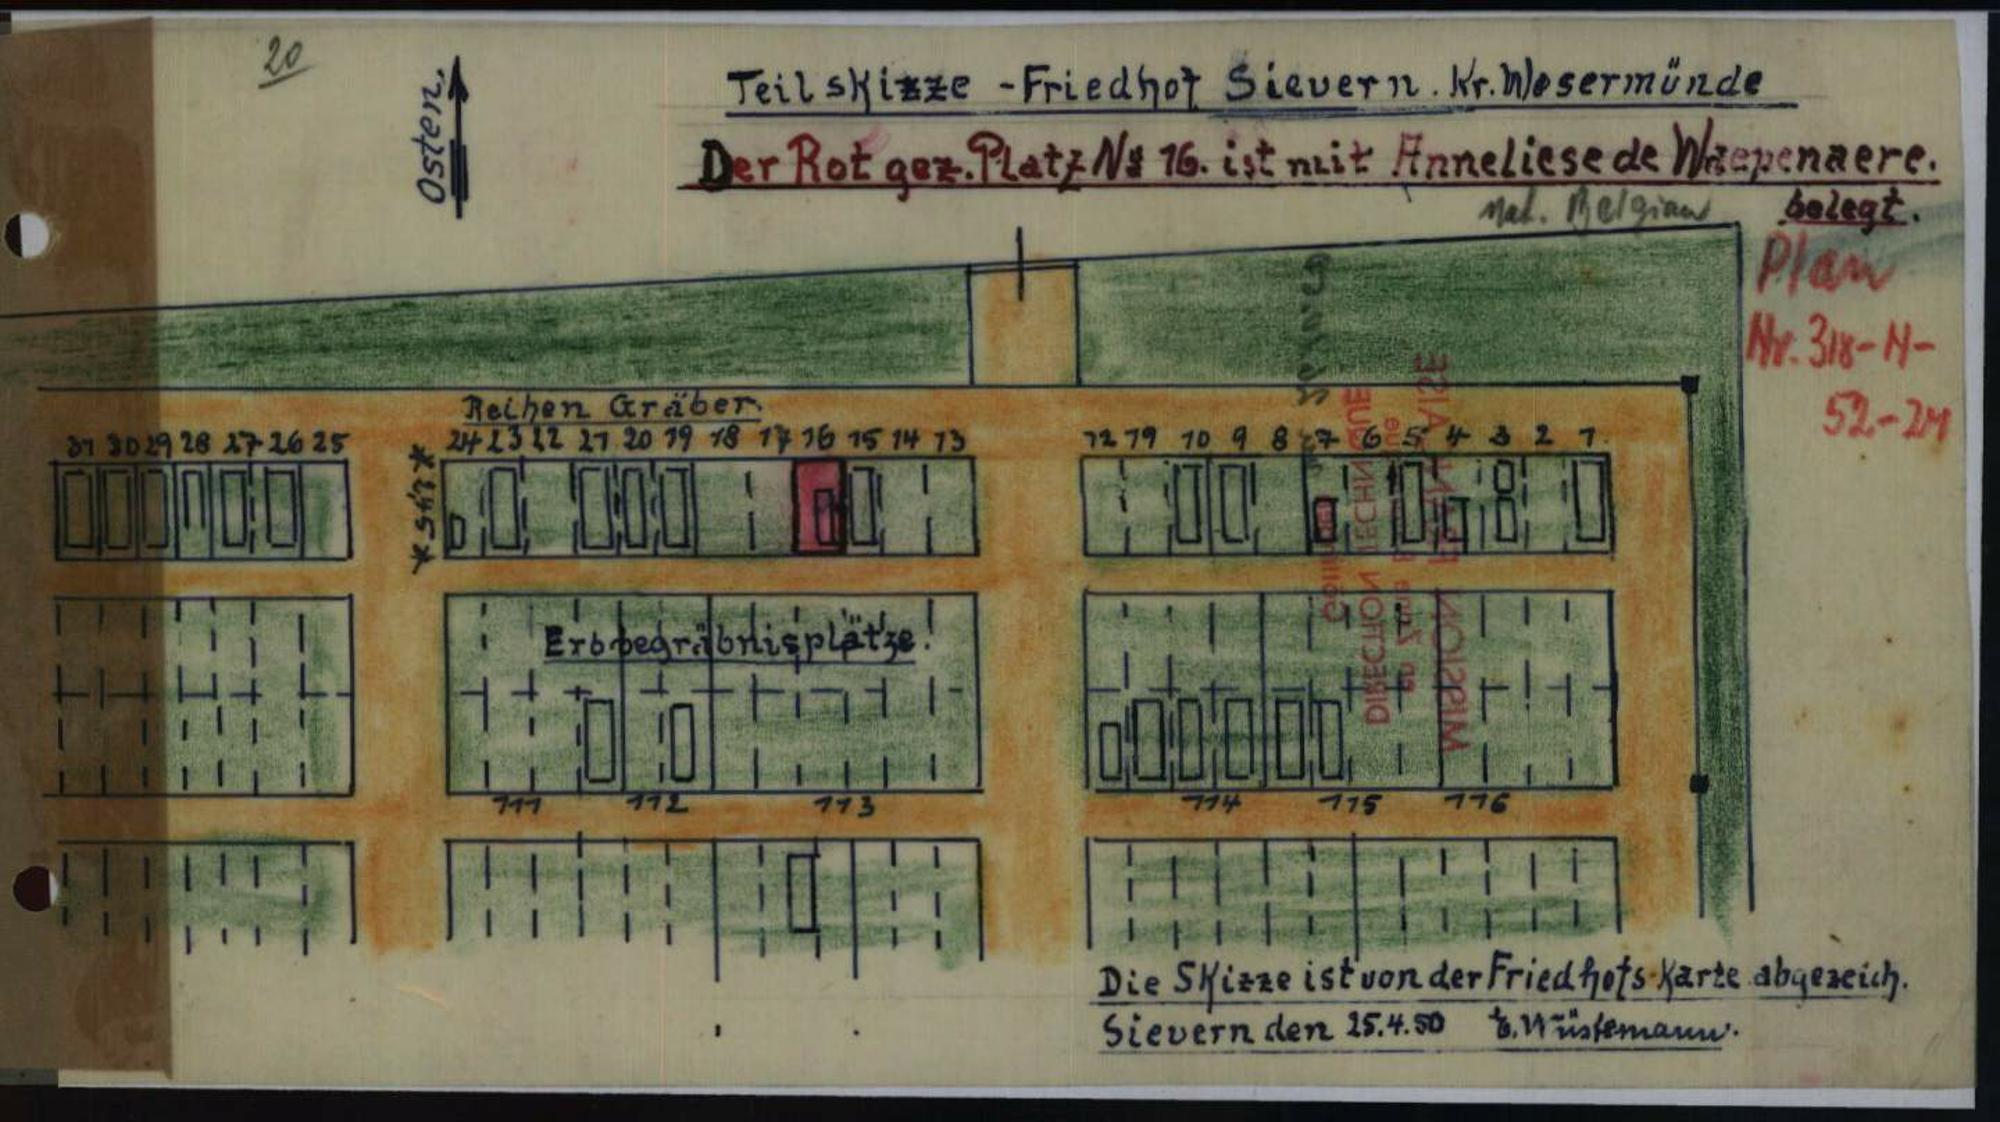 20
Osten.
Teilskizze - Friedhof Sievern. Kr. Wesermünde
Der Rot gez. Platz No 16. ist mit Anneliese de Waepenaere.
belegt.
nat. Belgian
Plan
Nr. 318-H-
52-24
Reihen Gräber.
31 30 29 28 27 26 25
24 23 22 21 20 19 18 17 16 15 14 13
12 19 10 9 8 7 6 5 4 3 2 1.
Erbbegräbnisplätze.
111 112 113
114 115 116
MISSION FRANÇAISE
DIRECTION TECHNIQUE
Die Skizze ist von der Friedhofs-Karte abgezeich.
Sievern den 25.4.50 E. Wüstemann.